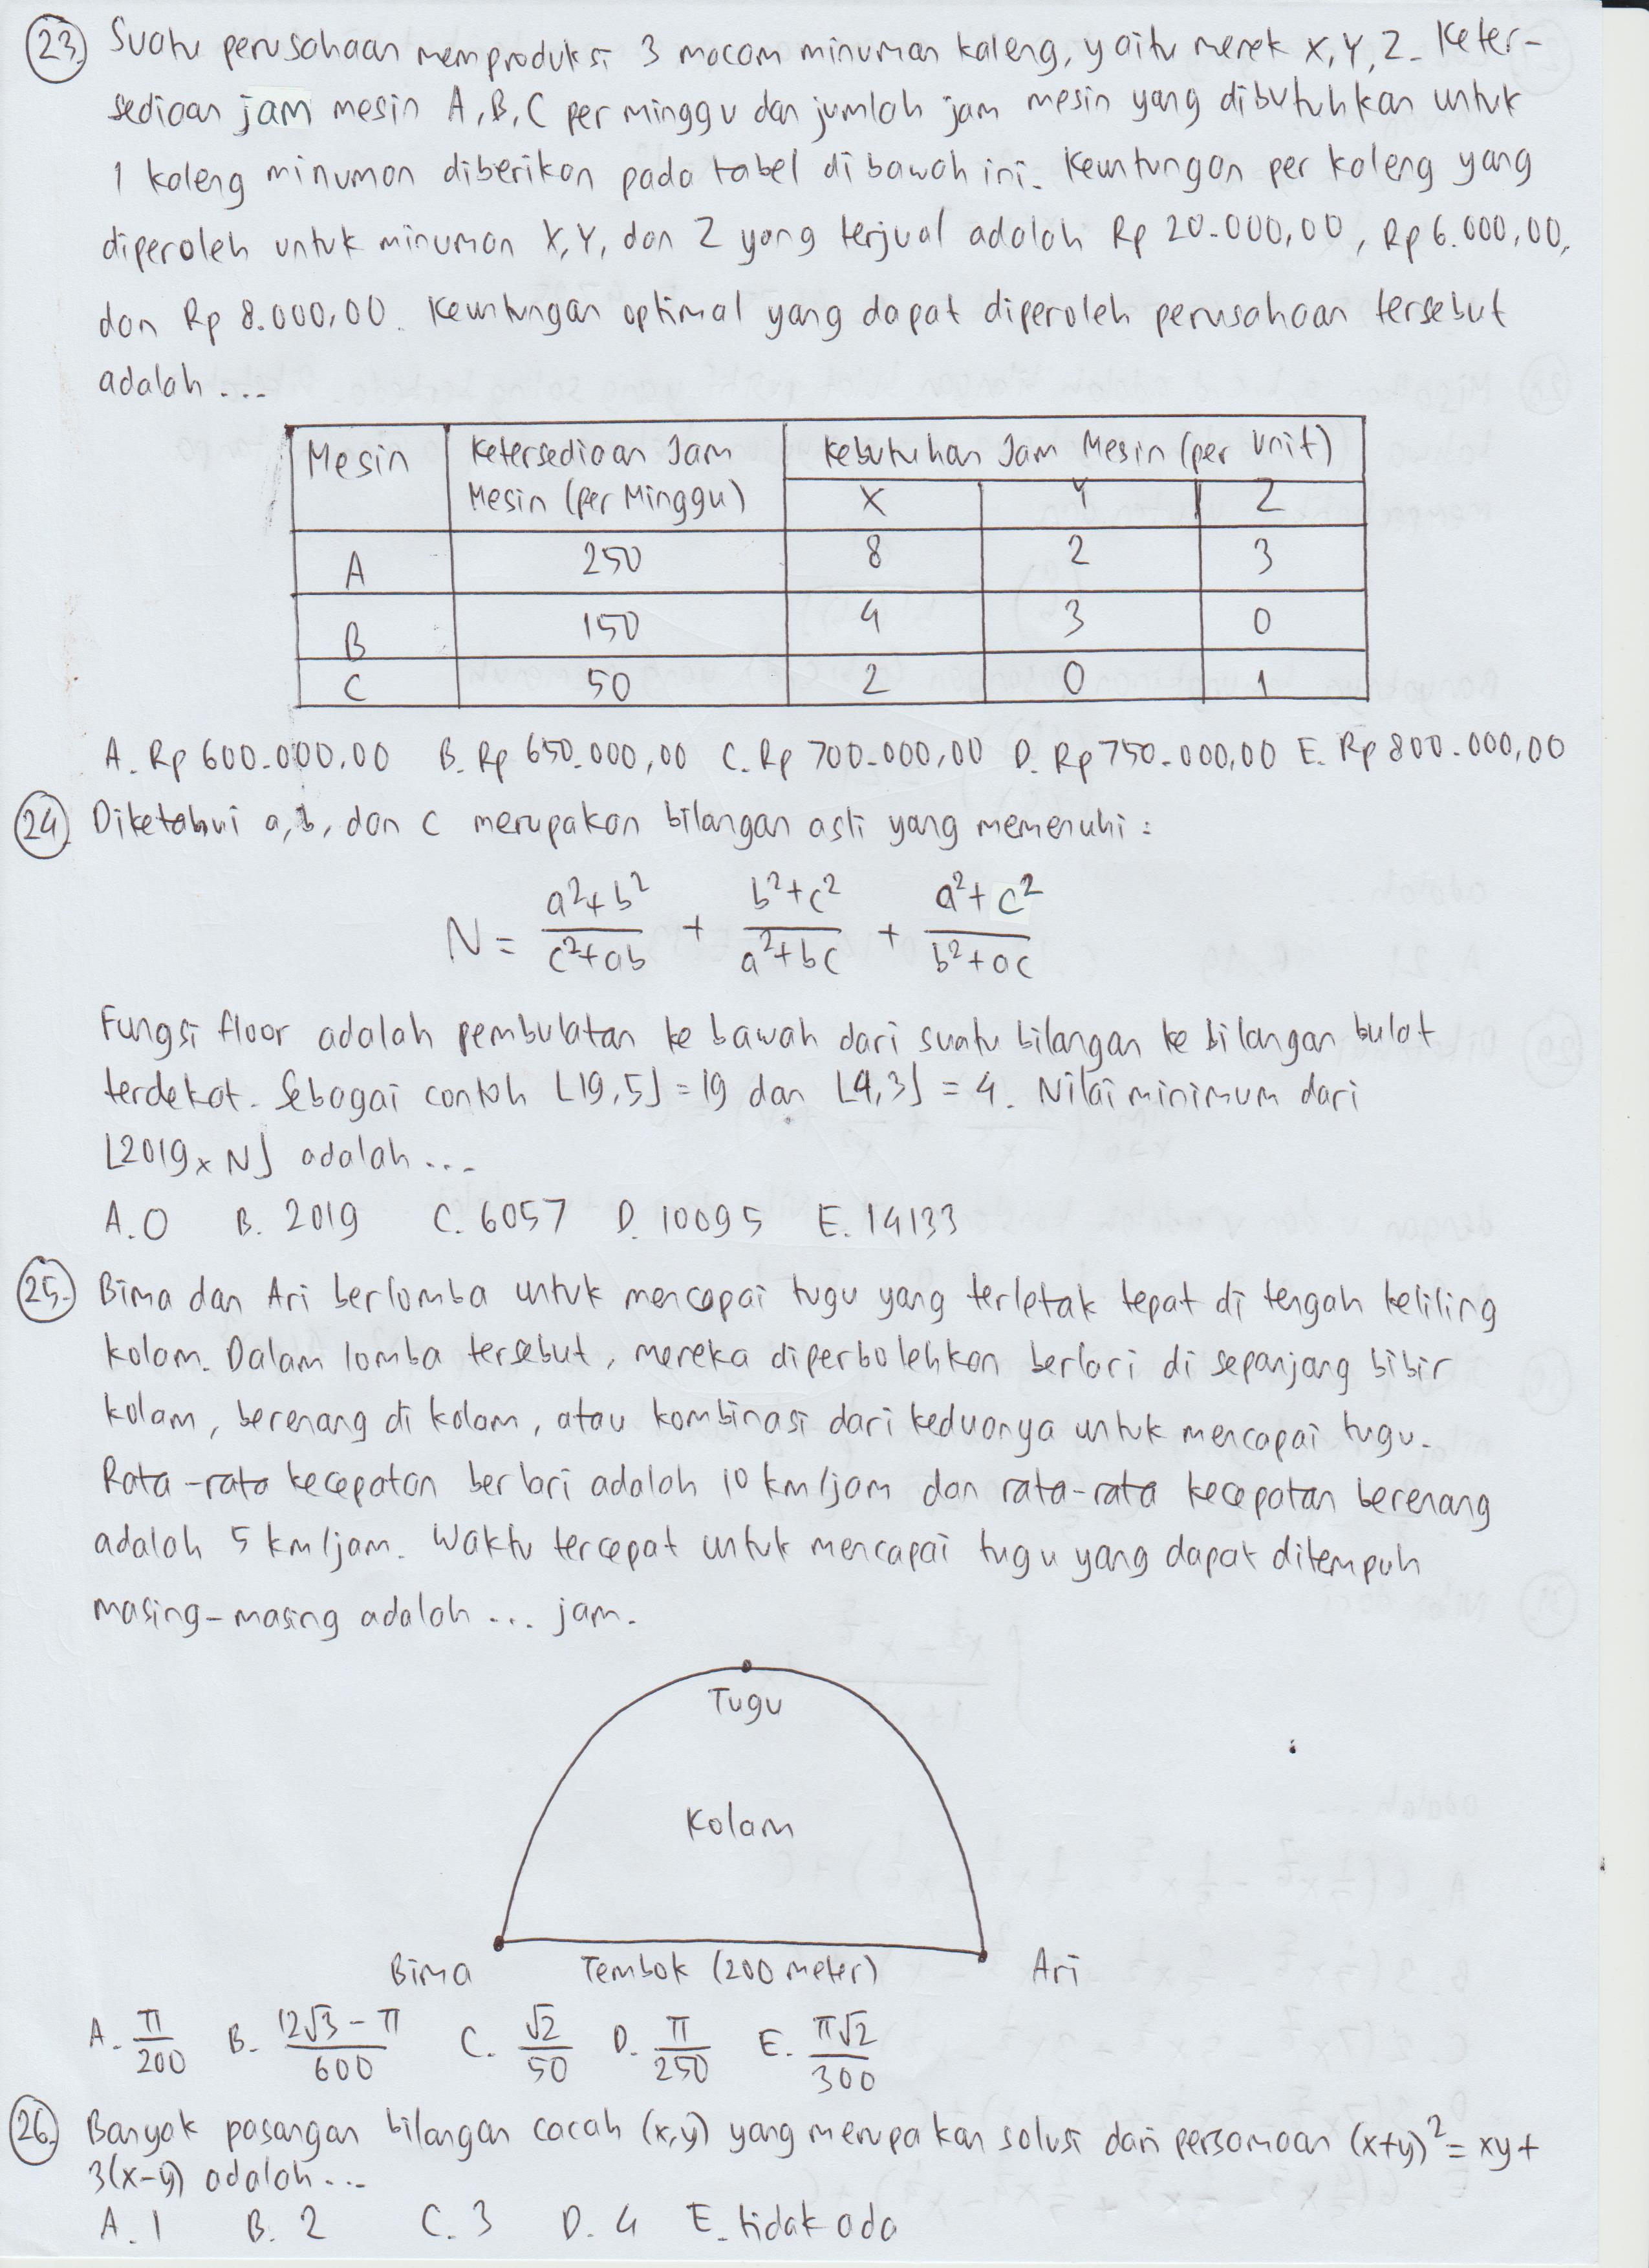 23. Suatu perusahaan memproduksi 3 macam minuman kaleng, yaitu merek X, Y, Z. Keter-
sediaan jam mesin A, B, C per minggu dan jumlah jam mesin yang dibutuhkan untuk
1 kaleng minuman diberikan pada tabel di bawah ini. Keuntungan per kaleng yang
diperoleh untuk minuman X, Y, dan Z yang terjual adalah Rp 20.000,00, Rp 6.000,00,
dan Rp 8.000,00. Keuntungan optimal yang dapat diperoleh perusahaan tersebut
adalah ...
Mesin | Ketersediaan Jam Mesin (per Minggu) | Kebutuhan Jam Mesin (per Unit)
X | Y | Z
A | 250 | 8 | 2 | 3
B | 150 | 4 | 3 | 0
C | 50 | 2 | 0 | 1
A. Rp 600.000,00 B. Rp 650.000,00 C. Rp 700.000,00 D. Rp 750.000,00 E. Rp 800.000,00
24. Diketahui a, b, dan c merupakan bilangan asli yang memenuhi :
N = (a²+b²)/(c²+ab) + (b²+c²)/(a²+bc) + (a²+c²)/(b²+ac)
Fungsi floor adalah pembulatan ke bawah dari suatu bilangan ke bilangan bulat
terdekat. Sebagai contoh ⌊19,5⌋ = 19 dan ⌊4,3⌋ = 4. Nilai minimum dari
⌊2019 x N⌋ adalah ...
A. 0 B. 2019 C. 6057 D. 10095 E. 14133
25. Bima dan Ari berlomba untuk mencapai tugu yang terletak tepat di tengah keliling
kolam. Dalam lomba tersebut, mereka diperbolehkan berlari di sepanjang bibir
kolam, berenang di kolam, atau kombinasi dari keduanya untuk mencapai tugu.
Rata-rata kecepatan berlari adalah 10 km/jam dan rata-rata kecepatan berenang
adalah 5 km/jam. Waktu tercepat untuk mencapai tugu yang dapat ditempuh
masing-masing adalah ... jam.
Tugu
Kolam
Bima Tembok (200 meter) Ari
A. π/200 B. (12√3 - π)/600 C. √2/50 D. π/250 E. π√2/300
26. Banyak pasangan bilangan cacah (x,y) yang merupakan solusi dari persamaan (x+y)² = xy +
3(x-y) adalah ...
A. 1 B. 2 C. 3 D. 4 E. tidak ada